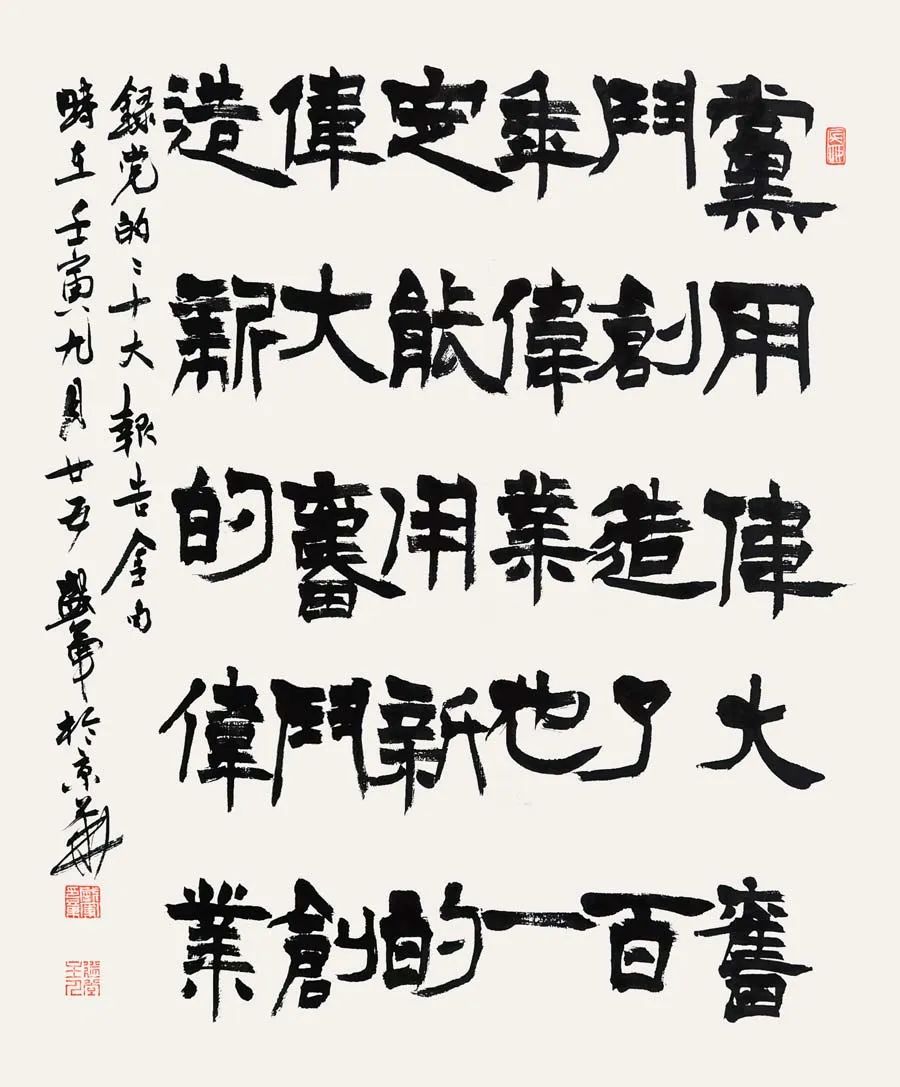 黨用偉大奮
鬥創造了百
年偉業也一
定能用新的
偉大奮鬥創
造新的偉業
錄党的二十大報告金句
時在壬寅九月廿五 軍於京華